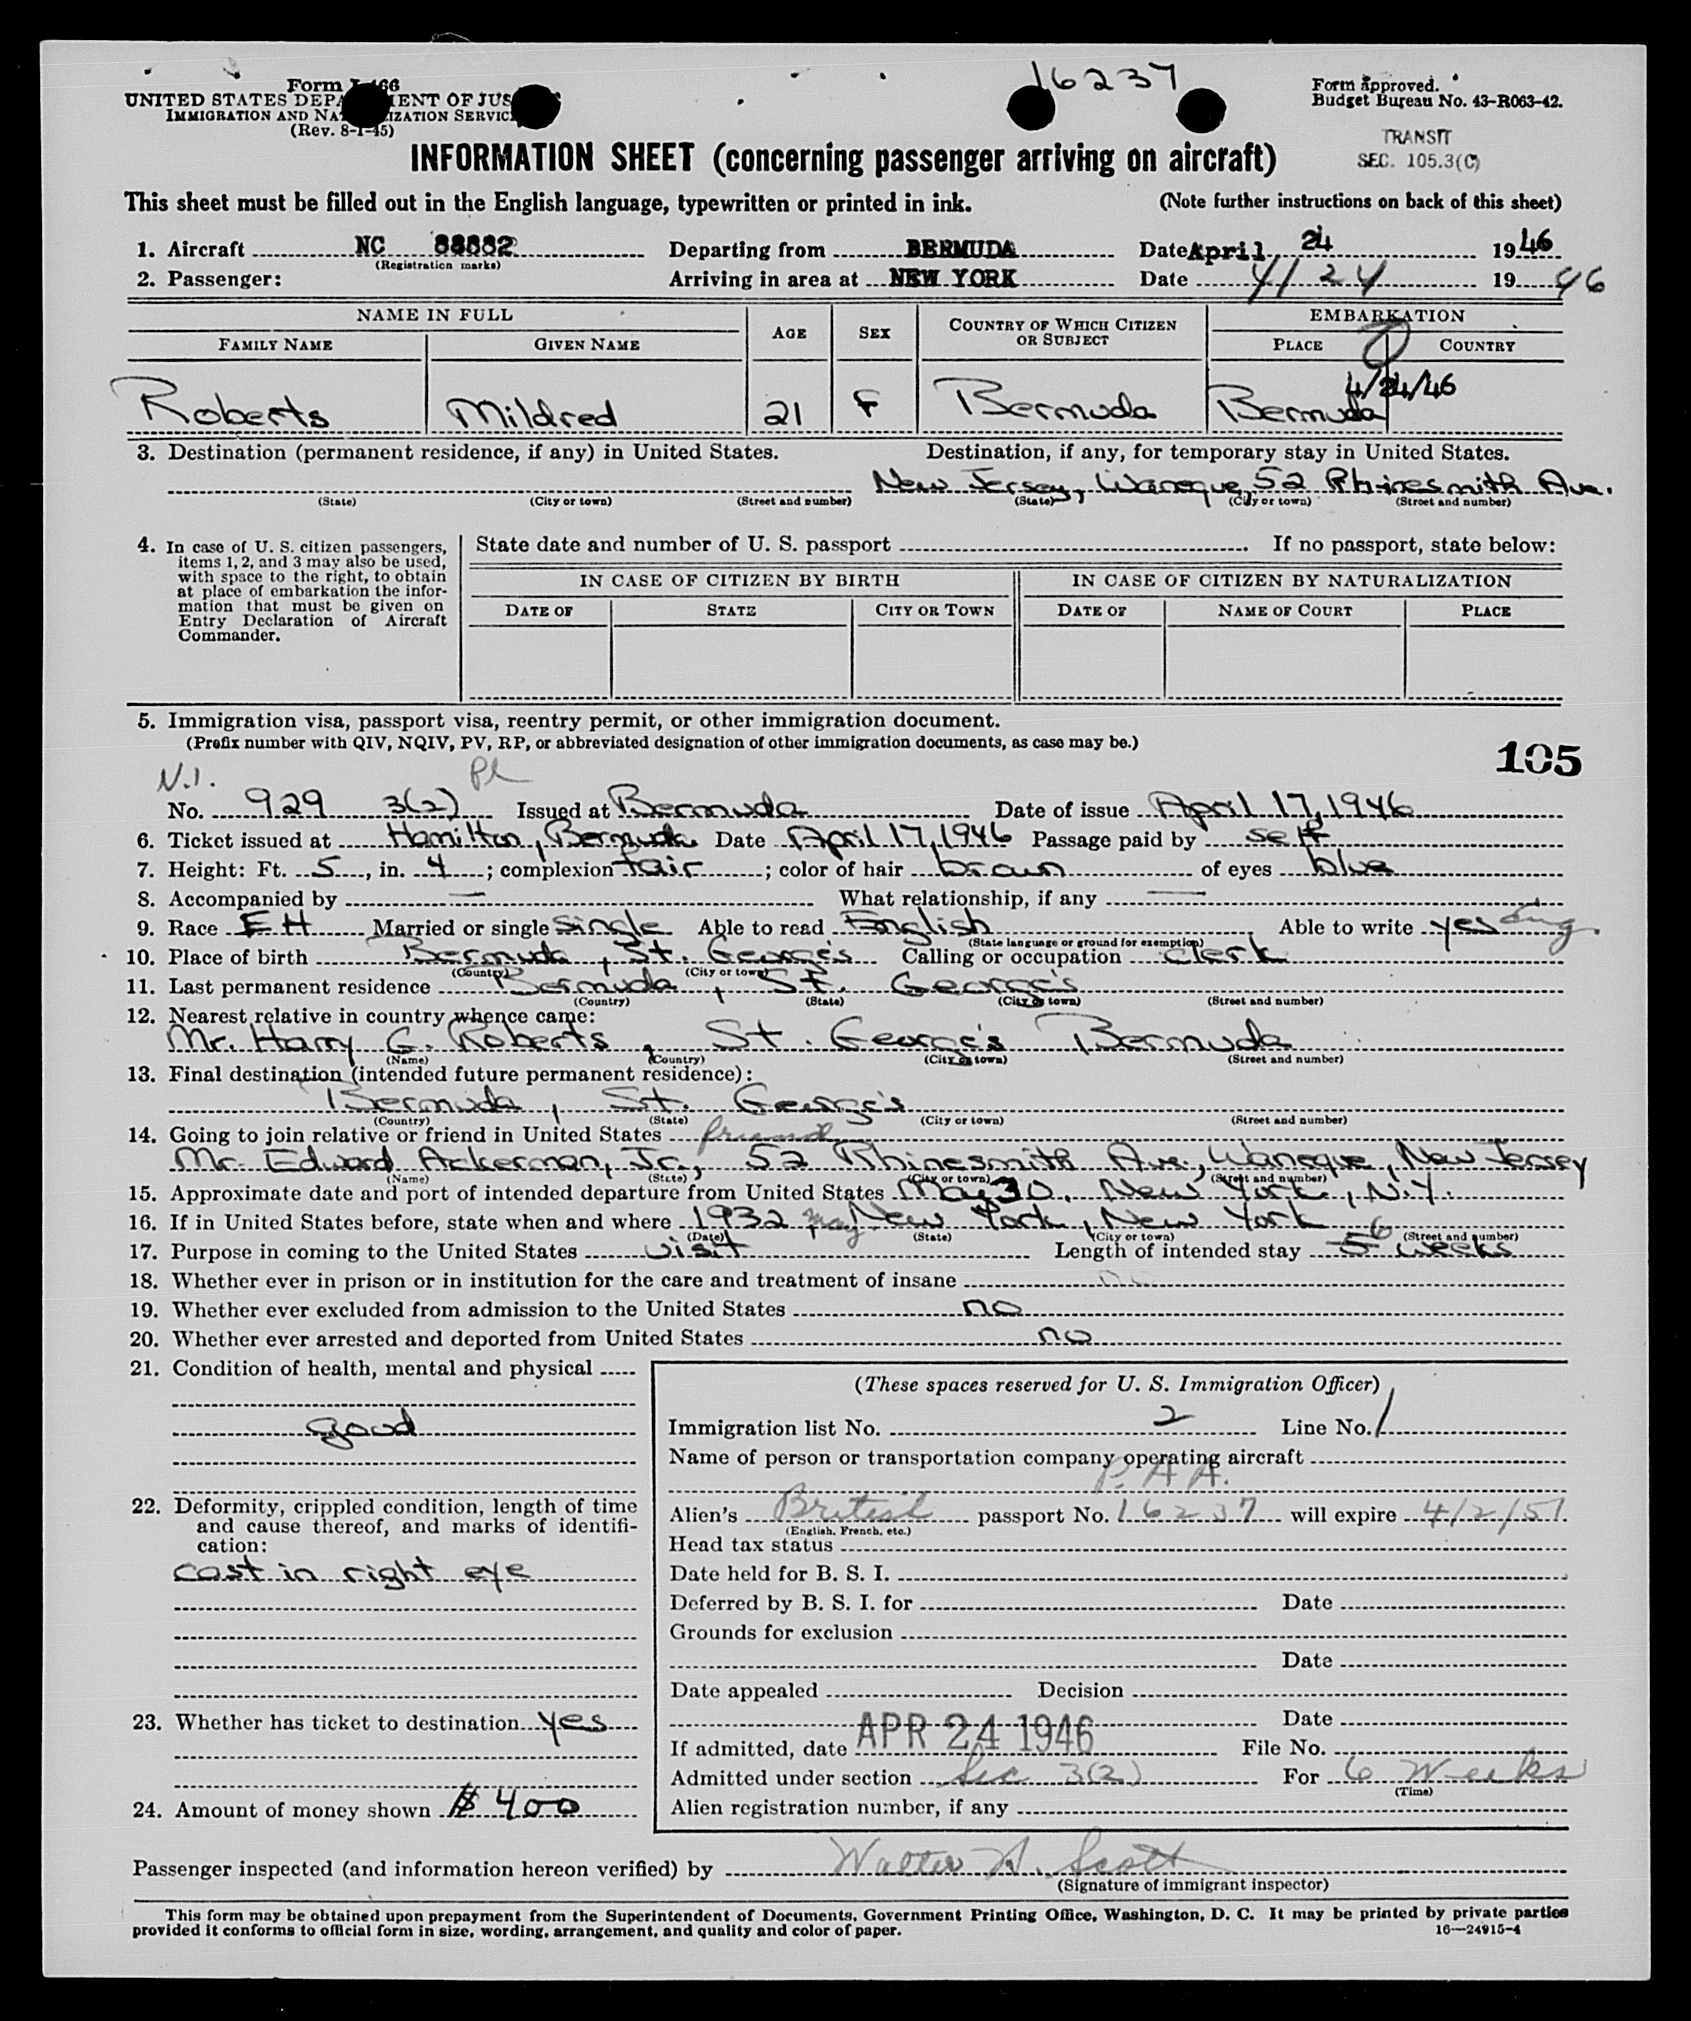 16237
Form I-466
UNITED STATES DEPARTMENT OF JUSTICE
IMMIGRATION AND NATURALIZATION SERVICE
(Rev. 8-1-45)
Form approved.
Budget Bureau No. 43-R063-42.
TRANSIT
SEC. 105.3(C)
INFORMATION SHEET (concerning passenger arriving on aircraft)
This sheet must be filled out in the English language, typewritten or printed in ink. (Note further instructions on back of this sheet)
1. Aircraft NC 88882 Departing from BERMUDA Date April 24 1946
(Registration marks)
2. Passenger: Arriving in area at NEW YORK Date 4/24 1946
NAME IN FULL AGE SEX COUNTRY OF WHICH CITIZEN OR SUBJECT EMBARKATION
FAMILY NAME GIVEN NAME PLACE COUNTRY
4/24/46
Roberts Mildred 21 F Bermuda Bermuda
3. Destination (permanent residence, if any) in United States. Destination, if any, for temporary stay in United States.
New Jersey, Wanaque, 52 Rhinesmith Ave.
(State) (City or town) (Street and number) (State) (City or town) (Street and number)
4. In case of U. S. citizen passengers, items 1, 2, and 3 may also be used, with space to the right, to obtain at place of embarkation the information that must be given on Entry Declaration of Aircraft Commander.
State date and number of U. S. passport . If no passport, state below:
IN CASE OF CITIZEN BY BIRTH IN CASE OF CITIZEN BY NATURALIZATION
DATE OF STATE CITY OR TOWN DATE OF NAME OF COURT PLACE
5. Immigration visa, passport visa, reentry permit, or other immigration document.
(Prefix number with QIV, NQIV, PV, RP, or abbreviated designation of other immigration documents, as case may be.)
105
N.I.
No. 929 3(2) Issued at Bermuda Date of issue April 17, 1946
6. Ticket issued at Hamilton, Bermuda Date April 17, 1946 Passage paid by self
7. Height: Ft. 5, in. 4; complexion fair; color of hair brown of eyes blue
8. Accompanied by — What relationship, if any —
9. Race EH Married or single Single Able to read English Able to write yes Eng.
(State language or ground for exemption)
10. Place of birth Bermuda, St. George's Calling or occupation clerk
(Country) (City or town)
11. Last permanent residence Bermuda, St. George's
(Country) (State) (City or town) (Street and number)
12. Nearest relative in country whence came:
Mr. Harry G. Roberts, St. George's Bermuda
(Name) (Country) (City or town) (Street and number)
13. Final destination (intended future permanent residence):
Bermuda, St. George's
(Country) (State) (City or town) (Street and number)
14. Going to join relative or friend in United States friend
Mr. Edward Ackerman, Jr., 52 Rhinesmith Ave., Wanaque, New Jersey
(Name) (State) (City or town) (Street and number)
15. Approximate date and port of intended departure from United States May 30, New York, N.Y.
16. If in United States before, state when and where 1932 May New York, New York
(Date) (State) (City or town) (Street and number)
17. Purpose in coming to the United States visit Length of intended stay 5 6 weeks
18. Whether ever in prison or in institution for the care and treatment of insane no
19. Whether ever excluded from admission to the United States no
20. Whether ever arrested and deported from United States no
21. Condition of health, mental and physical
good
22. Deformity, crippled condition, length of time and cause thereof, and marks of identification:
cast in right eye
23. Whether has ticket to destination yes
24. Amount of money shown $ 400
(These spaces reserved for U. S. Immigration Officer)
Immigration list No. 2 Line No. 1
Name of person or transportation company operating aircraft
P. A A.
Alien's British passport No. 16237 will expire 4/2/51
(English, French, etc.)
Head tax status
Date held for B. S. I.
Deferred by B. S. I. for Date
Grounds for exclusion
Date
Date appealed Decision
Date
If admitted, date APR 24 1946 File No.
Admitted under section Sec 3(2) For 6 Weeks
(Time)
Alien registration number, if any
Passenger inspected (and information hereon verified) by Walter H. Scott
(Signature of immigrant inspector)
This form may be obtained upon prepayment from the Superintendent of Documents, Government Printing Office, Washington, D. C. It may be printed by private parties
provided it conforms to official form in size, wording, arrangement, and quality and color of paper. 16—24915-4